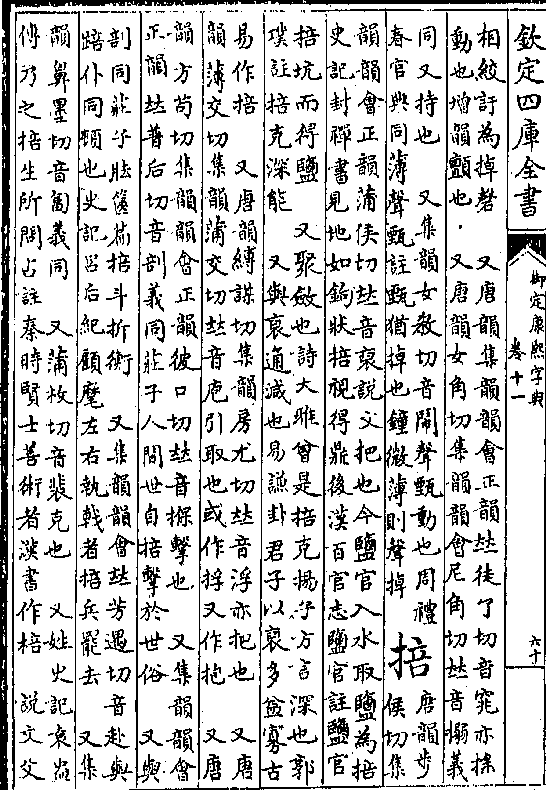 欽定四庫全書
御定康熙字典
卷十一
六十
相絞訐為掉磬　又唐韻集韻韻會正韻𠀤徒了切音窕亦揺
動也增韻顫也　又唐韻女角切集韻韻會尼角切𠀤音搦義
同又持也　又集韻女敎切音鬧聲甄動也周禮
春官典同薄聲甄註甄猶掉也鐘微薄則聲掉
掊
唐韻步
侯切集
韻韻會正韻蒲侯切𠀤音裒說文把也今鹽官入水取鹽為掊
史記封禪書見地如鉤狀掊視得鼎後漢百官志鹽官註鹽官
掊坑而得鹽　又聚斂也詩大雅曾是掊克揚子方言深也郭
璞註掊克深能　又與裒通減也易謙卦君子以裒多益寡古
易作掊　又唐韻縛謀切集韻房尤切𠀤音浮亦把也　又唐
韻薄交切集韻蒲交切𠀤音庖引取也或作捊又作抱　又唐
韻方苟切集韻韻會正韻彼口切𠀤音擊也　又集韻韻會
正韻𠀤普后切音剖義同莊子人間世自掊擊於世俗　又與
剖同莊子胠篋篇掊斗折衡　又集韻韻會𠀤芳遇切音赴與
踣仆同頓也史記呂后紀顧麾左右執戟者掊兵罷去　又集
韻鼻墨切音匐義同　又蒲枚切音裴克也　又姓史記袁盎
傳乃之掊生所問占註秦時賢士善術者漢書作棓　說文父